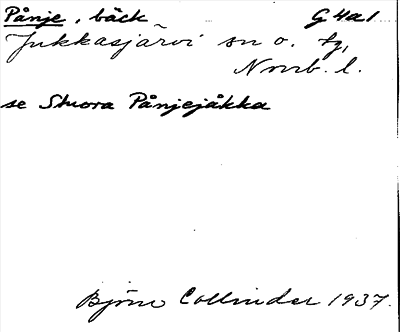 Pånje, bäck G 4a1
Jukkasjärvi sn o. tg,
Norrb. l.
se Stuora Pånjejåkka
Björn Collinder 1937.